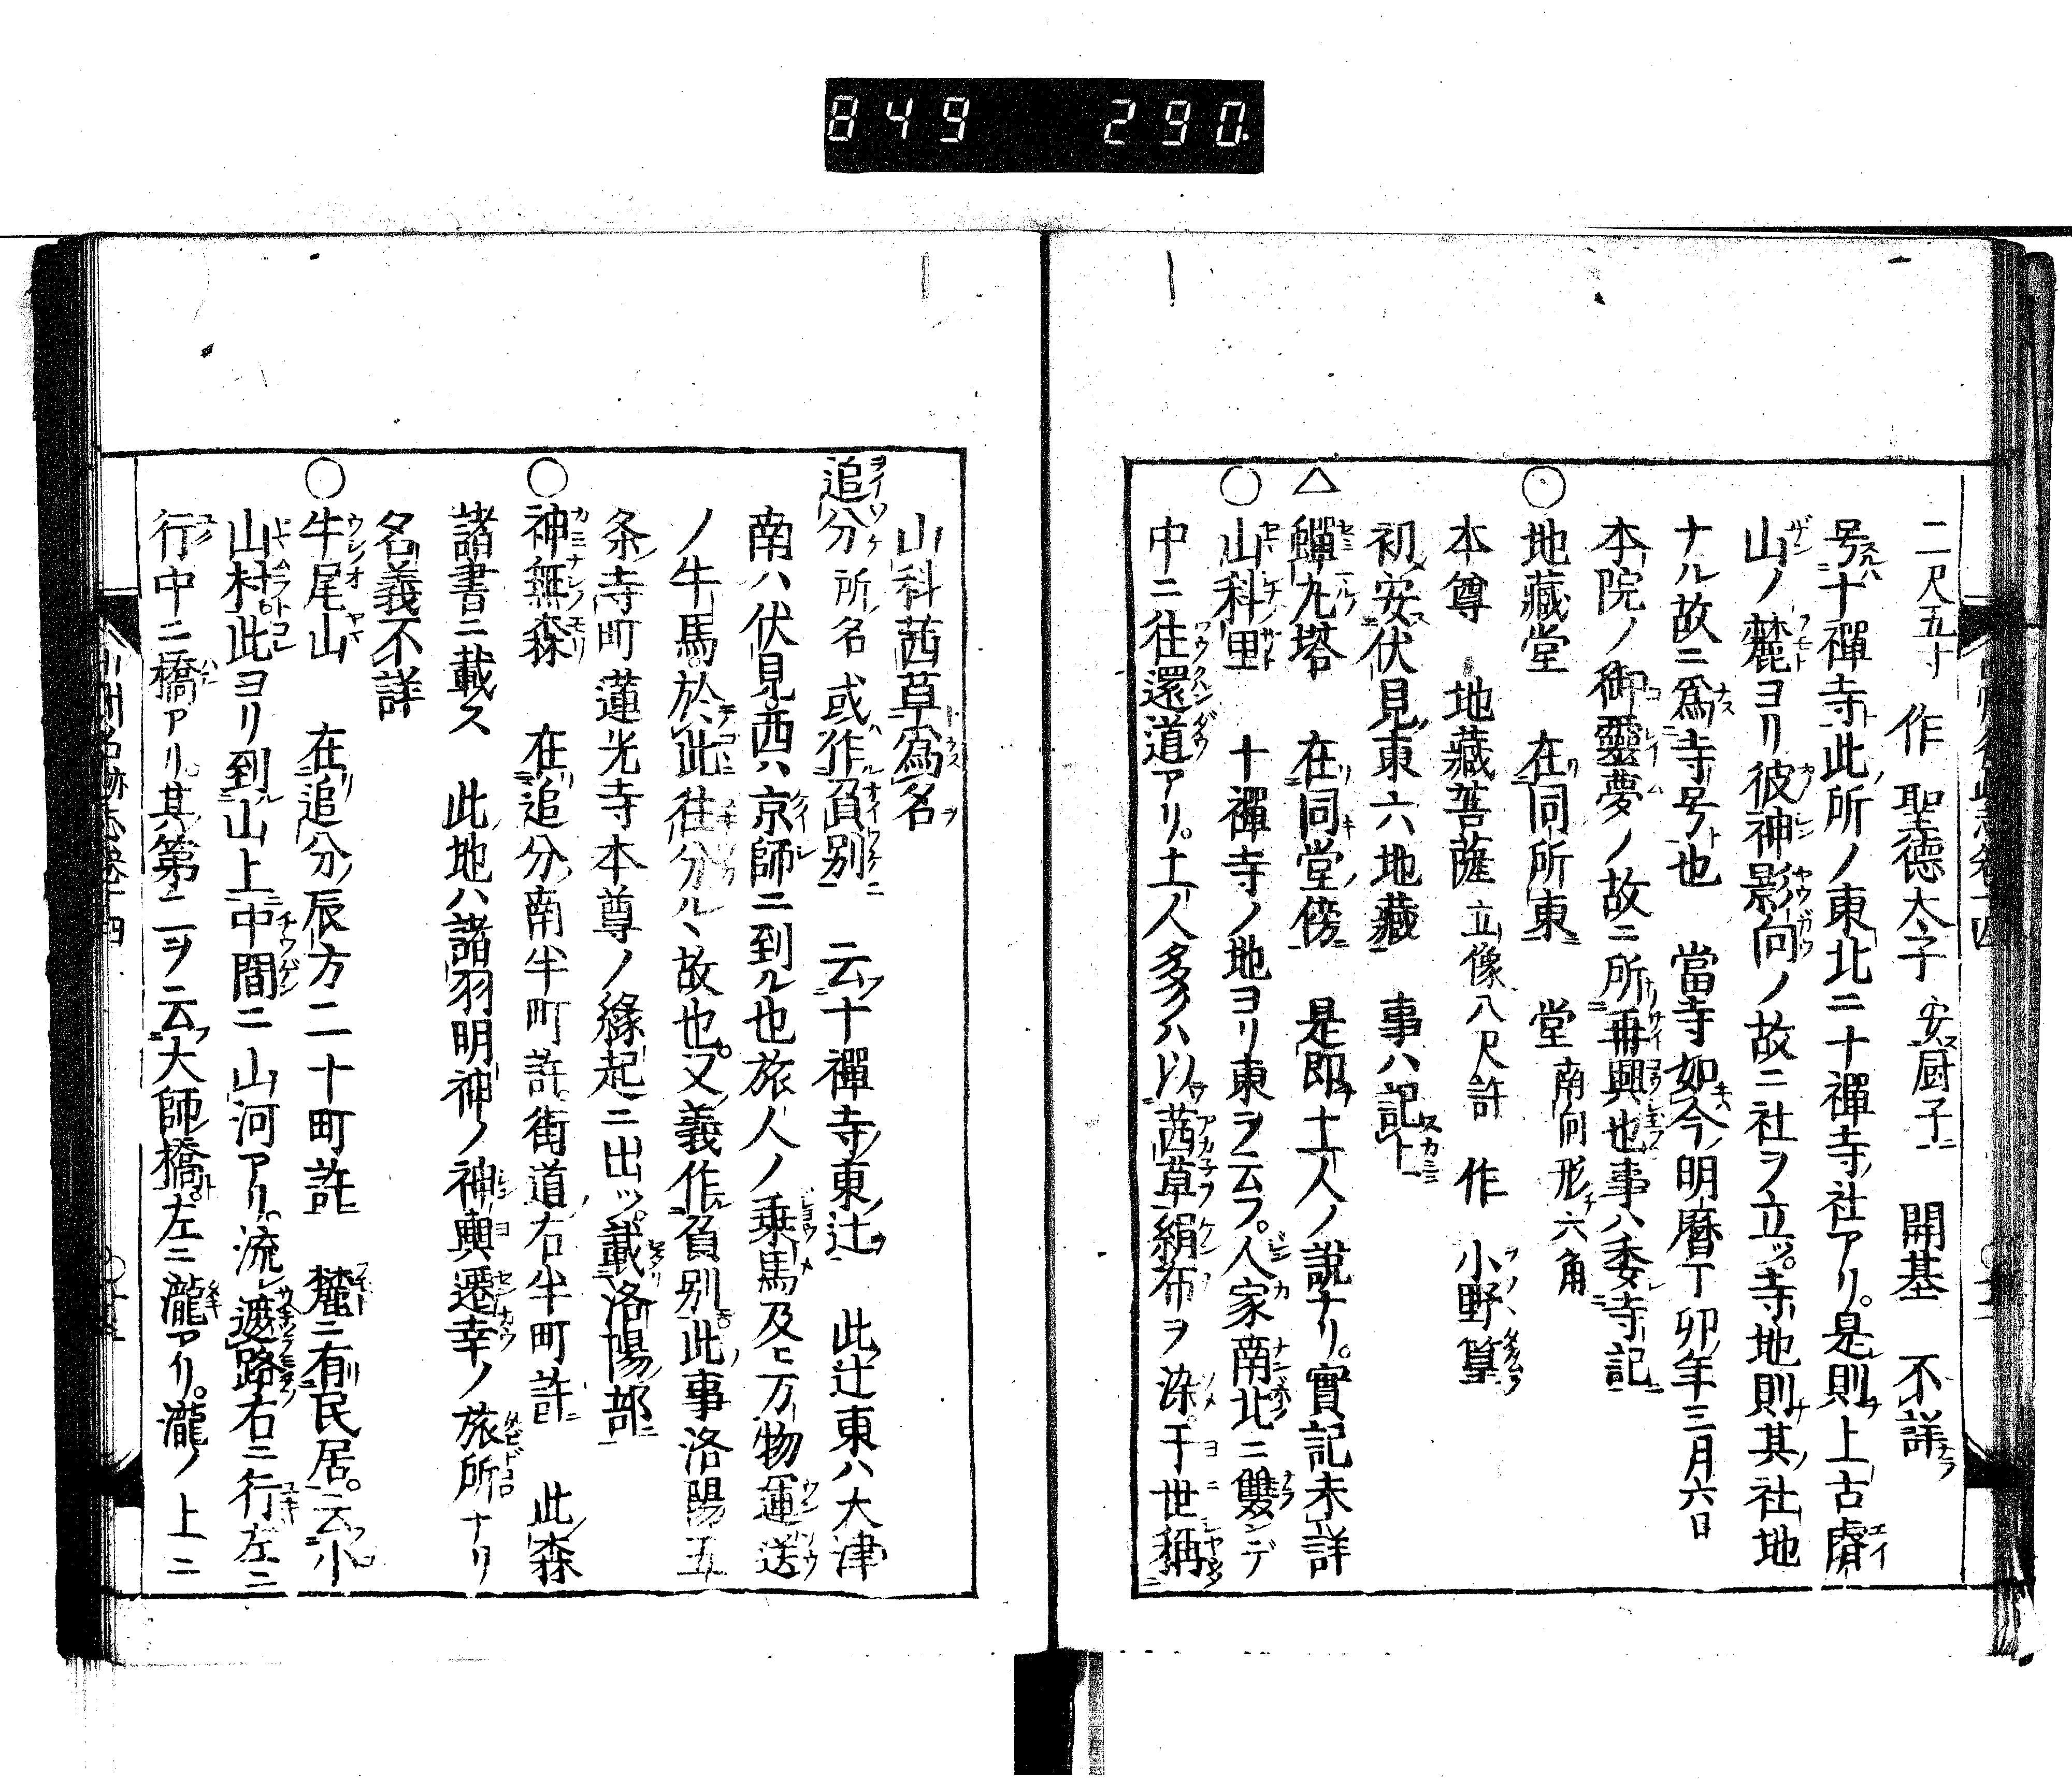 849 290
二尺五寸 作 聖德太子 安厨子 開基 不詳
号十禪寺此所ノ東北ニ十禪寺社アリ。是則上古
山ノ麓ヨリ彼神影向ノ故ニ社ヲ立ツ。寺地則其社地
ナル故ニ爲寺号也 當寺如今明暦丁卯年三月六日
本院ノ御靈夢ノ故ニ所再興也事ハ委寺記
○地藏堂 在同所東 堂 南向形六角
本尊 地藏菩薩 立像八尺許 作 小野篁
初安伏見東六地藏 事ハ記上
△蟬丸塔 在同堂傍 是即土人ノ說ナリ。實記未詳
○山科里 十禪寺ノ地ヨリ東ヲ云フ。人家南北ニ雙ンデ
中ニ往還道アリ。土人多クハ以茜草絹布ヲ染。于世稱
山科茜草爲名
追分 所名 或作負別 云十禪寺東辻 此辻東ハ大津
南ハ伏見。西ハ京師ニ到ル也旅人ノ乗馬及ヒ万物運送
ノ牛馬。於此往分ル、故也。又義作負別。此事洛陽五
条寺町蓮光寺本尊ノ緣起ニ出ッ。載洛陽部
○神無森 在追分南半町許。街道右半町許 此森
諸書ニ載ス 此地ハ諸羽明神ノ神輿遷幸ノ旅所ナリ
名義不詳
○牛尾山 在追分辰方二十町許 麓ニ有民居。云小
山村。此ヨリ到山上中間ニ山河アリ。流レ遮路右ニ行左ニ
行中ニ橋アリ。其第二ヲ云大師橋。左ニ瀧アリ。瀧ノ上ニ